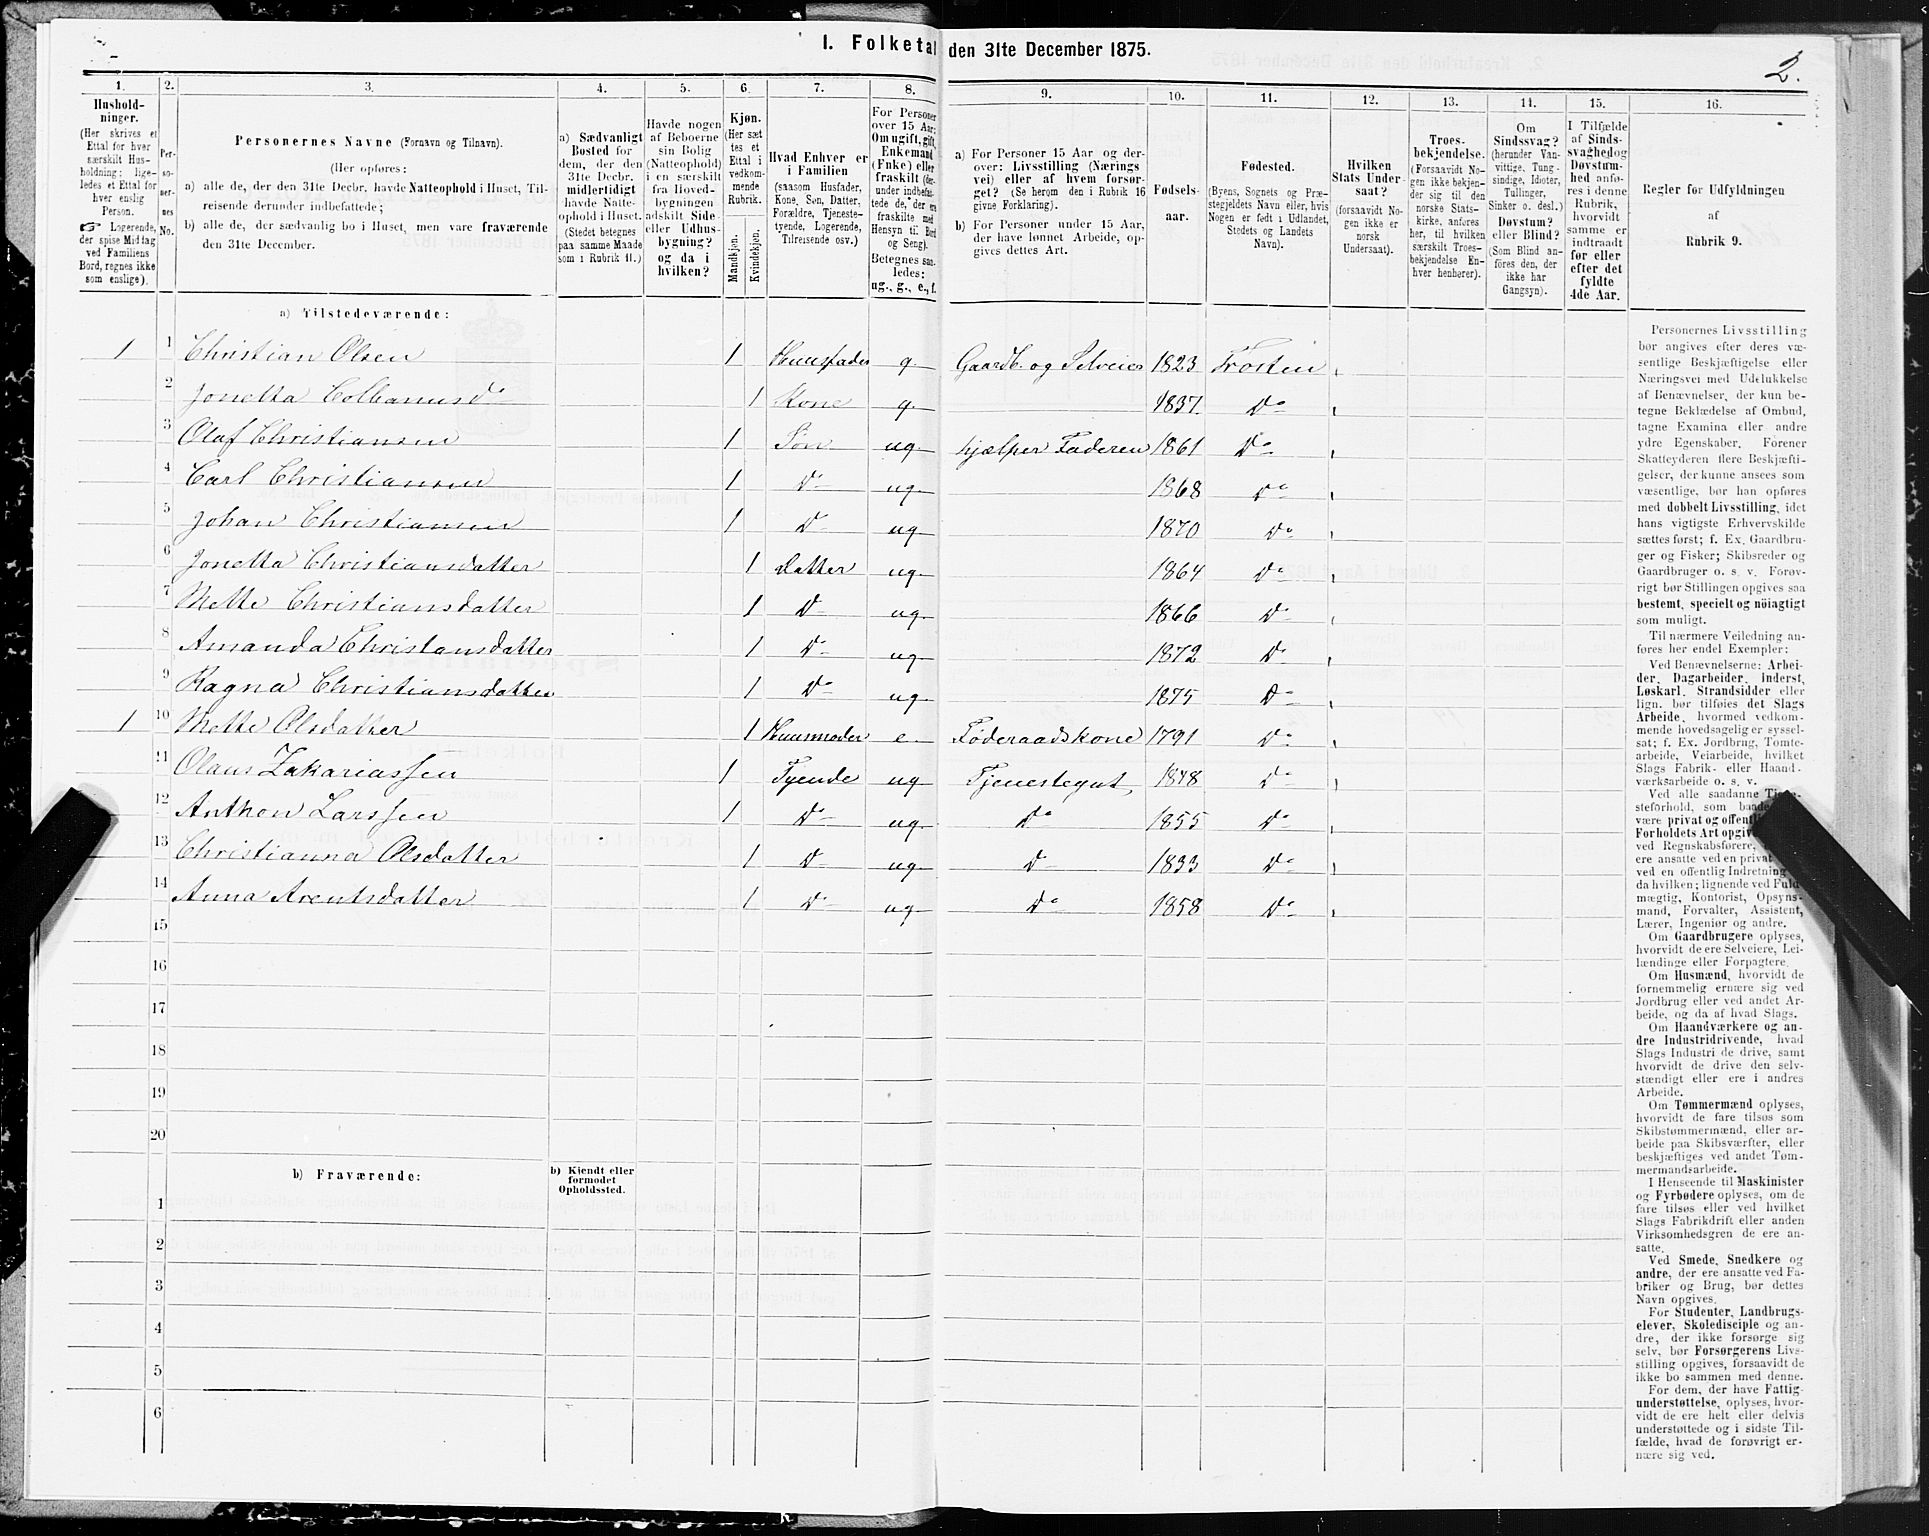 I. Folketal den 31te December 1875.
2.
1. 2. 3. 4. 5. 6. 7. 8. 9. 10. 11. 12. 13. 14. 15. 16.
Hushold-
ninger.
(Her skrives et
Ettal for hver
særskilt Hus-
holdning; lige-
ledes et Ettal for
hver enslig
Person.
☞ Logerende,
der spise Middag
ved Familiens
Bord, regnes ikke
som enslige).
Per-
so-
ner-
nes
No.
Personernes Navne (Fornavn og Tilnavn).
(Her opføres:
a) alle de, der den 31te Decbr. havde Natteophold i Huset, Til-
reisende derunder indbefattede;
b) alle de, der sædvanlig bo i Huset, men vare fraværende
den 31te December.
a) Sædvanligt
Bosted for
dem, der den
31te Decbr.
midlertidigt
havde Natte-
ophold i Huset.
(Stedet betegnes
paa samme Maade
som i Rubrik 11.)
Havde nogen
af Beboerne
sin Bolig
(Natteophold)
i en særskilt
fra Hoved-
bygningen
adskilt Side-
eller Udhus-
bygning?
og da i
hvilken?
Kjøn.
(Her sæt-
tes et
Ettal i
vedkom-
mende
Rubrik.
Mandkjøn.
Kvindekjøn.
Hvad Enhver er
i Familien
(saasom Husfader,
Kone, Søn, Datter,
Forældre, Tjeneste-
tyende, Logerende,
Tilreisende osv.)
For Personer
over 15 Aar:
Om ugift, gift,
Enkemand
(Enke) eller
fraskilt (der-
under indbefat-
tede de, der ere
fraskilte med
Hensyn til Bord
og Seng).
Betegnes saa-
ledes:
ug., g., e., f.
a) For Personer 15 Aar og der-
over: Livsstilling (Nærings
vei) eller af hvem forsør-
get? (Se herom den i Rubrik 16
givne Forklaring).
b) For Personer under 15 Aar,
der have lønnet Arbeide, op-
gives dettes Art.
Fødsels-
aar.
Fødested.
(Byens, Sognets og Præ-
stegjeldets Navn eller, hvis
Nogen er født i Udlandet,
Stedets og Landets
Navn).
Hvilken
Stats Under-
saat?
(forsaavidt No-
gen ikke er
norsk
Undersaat).
Troes-
bekjendelse.
(Forsaavidt No-
gen ikke bekjen-
der sig til den
norske Stats-
kirke, anføres
her, til hvilken
særskilt Troes-
bekjendelse En-
hver henhører).
Om
Sindssvag?
(herunder Van-
vittige, Tung-
sindige, Idioter,
Tullinger,
Sinker o. desl.)
Døvstum?
eller Blind?
(Som Blind an-
føres den, der
ikke har
Gangsyn).
I Tilfælde
af Sinds-
svaghed og
Døvstum-
hed anfø-
res i denne
Rubrik,
hvorvidt
samme er
indtraadt
før eller
efter det
fyldte
4de Aar.
Regler for Udfyldningen
af
Rubrik 9.
a) Tilstedeværende:
1 1 Christian Olsen 1 Huusfader g. Gaardb. og Selveier 1823 Frosten
2 Jonetta Colbanusd. 1 Kone g. 1837 Do
3 Olaf Christiansen 1 Søn ug. hjælper Faderen 1861 Do
4 Carl Christiansen 1 Do ug. 1868 Do
5 Johan Christiansen 1 Do ug 1870 Do
6 Jonetta Christiansdatter 1 Datter ug. 1864 Do
7 Mette Christiansdatter 1 Do ug. 1866 Do
8 Amanda Christansdatter 1 Do ug 1872 Do
9 Ragna Christiansdatter 1 Do ug 1875 Do
1 10 Mette Olsdatter 1 Huusmoder e. Føderaadskone 1791 Do
11 Olaus Zakariassen 1 Tyende ug Tjenestegut, 1848 Do
12 Anthon Larssen 1 Do ug Do 1855 Do
13 Christianna Olsdatter 1 Do ug Do 1833 Do
14 Anna Arentsdatter 1 Do ug Do 1858 Do
15
16
17
18
19
20
b) Fraværende:
b) Kjendt eller
formodet
Opholdssted.
1
2
3
4
5
6
Personernes Livsstilling
bør angives efter deres væ-
sentlige Beskjæftigelse eller
Næringsvei med Udelukkelse
af Benævnelser, der kun be-
tegne Beklædelse af Ombud,
tagne Examina eller andre
ydre Egenskaber. Forener
Skatteyderen flere Beskjæfti-
gelser, der kunne ansees som
væsentlige, bør han opføres
med dobbelt Livsstilling, idet
hans vigtigste Erhvervskilde
sættes først; f. Ex. Gaardbru-
ger og Fisker; Skibsreder og
Gaardbruger o. s. v. Forøv-
rigt bør Stillingen opgives saa
bestemt, specielt og nöiagtigt
som muligt.
Til nærmere Veiledning an-
føres her endel Exempler:
Ved Benævnelserne: Arbei-
der, Dagarbeider, Inderst,
Løskarl, Strandsidder eller
lign. bør tilføies det Slags
Arbeide, hvormed vedkom-
mende hovedsagelig er syssel-
sat; f. Ex. Jordbrug, Tomte-
arbeide, Veiarbeide, hvilket
Slags Fabrik- eller Haand-
værksarbeide o. s. v.
Ved alle saadanne
steforhold, som
være privat og offentl
Forholdets Art opgiv
ved Regnskabsførere,
ere ansatte ved en privat
ved en offentlig Indretning
da hvilken; lignende ved Fuld-
mægtig, Kontorist, Opsyns-
mand, Forvalter, Assistent,
Lærer, Ingeniør og andre.
Om Gaardbrugere oplyses,
hvorvidt de ere Selveiere, Lei-
lændinge eller Forpagtere.
Om Husmænd, hvorvidt de
fornemmelig ernære sig ved
Jordbrug eller ved andet Ar-
beide, og da af hvad Slags.
Om Haandværkere og an-
dre Industridrivende, hvad
Slags Industri de drive, samt
hvorvidt de drive den selv-
stændigt eller ere i andres
Arbeide.
Om Tømmermænd oplyses,
hvorvidt de fare tilsøs som
Skibstømmermænd, eller ar-
beide paa Skibsværfter, eller
beskjæftiges ved andet Tøm-
mermandsarbeide.
I Henseende til Maskinister
og Fyrbødere oplyses, om de
fare tilsøs eller ved hvilket
Slags Fabrikdrift eller anden
Virksomhedsgren de ere an-
satte.
Ved Smede, Snedkere og
andre, der ere ansatte ved Fa-
briker og Brug, bør dettes
Navn opgives.
For Studenter, Landbrugs-
elever, Skoledisciple og an-
dre, der ikke forsørge sig
selv, bør Forsørgerens Livs-
stilling opgives, forsaavidt de
ikke bo sammen med denne.
For dem, der have Fattig-
understøttelse, oplyses, hvor-
vidt de ere helt eller delvis
understøttede og i sidste Til-
fælde, hvad de forøvrigt er-
nære sig ved.